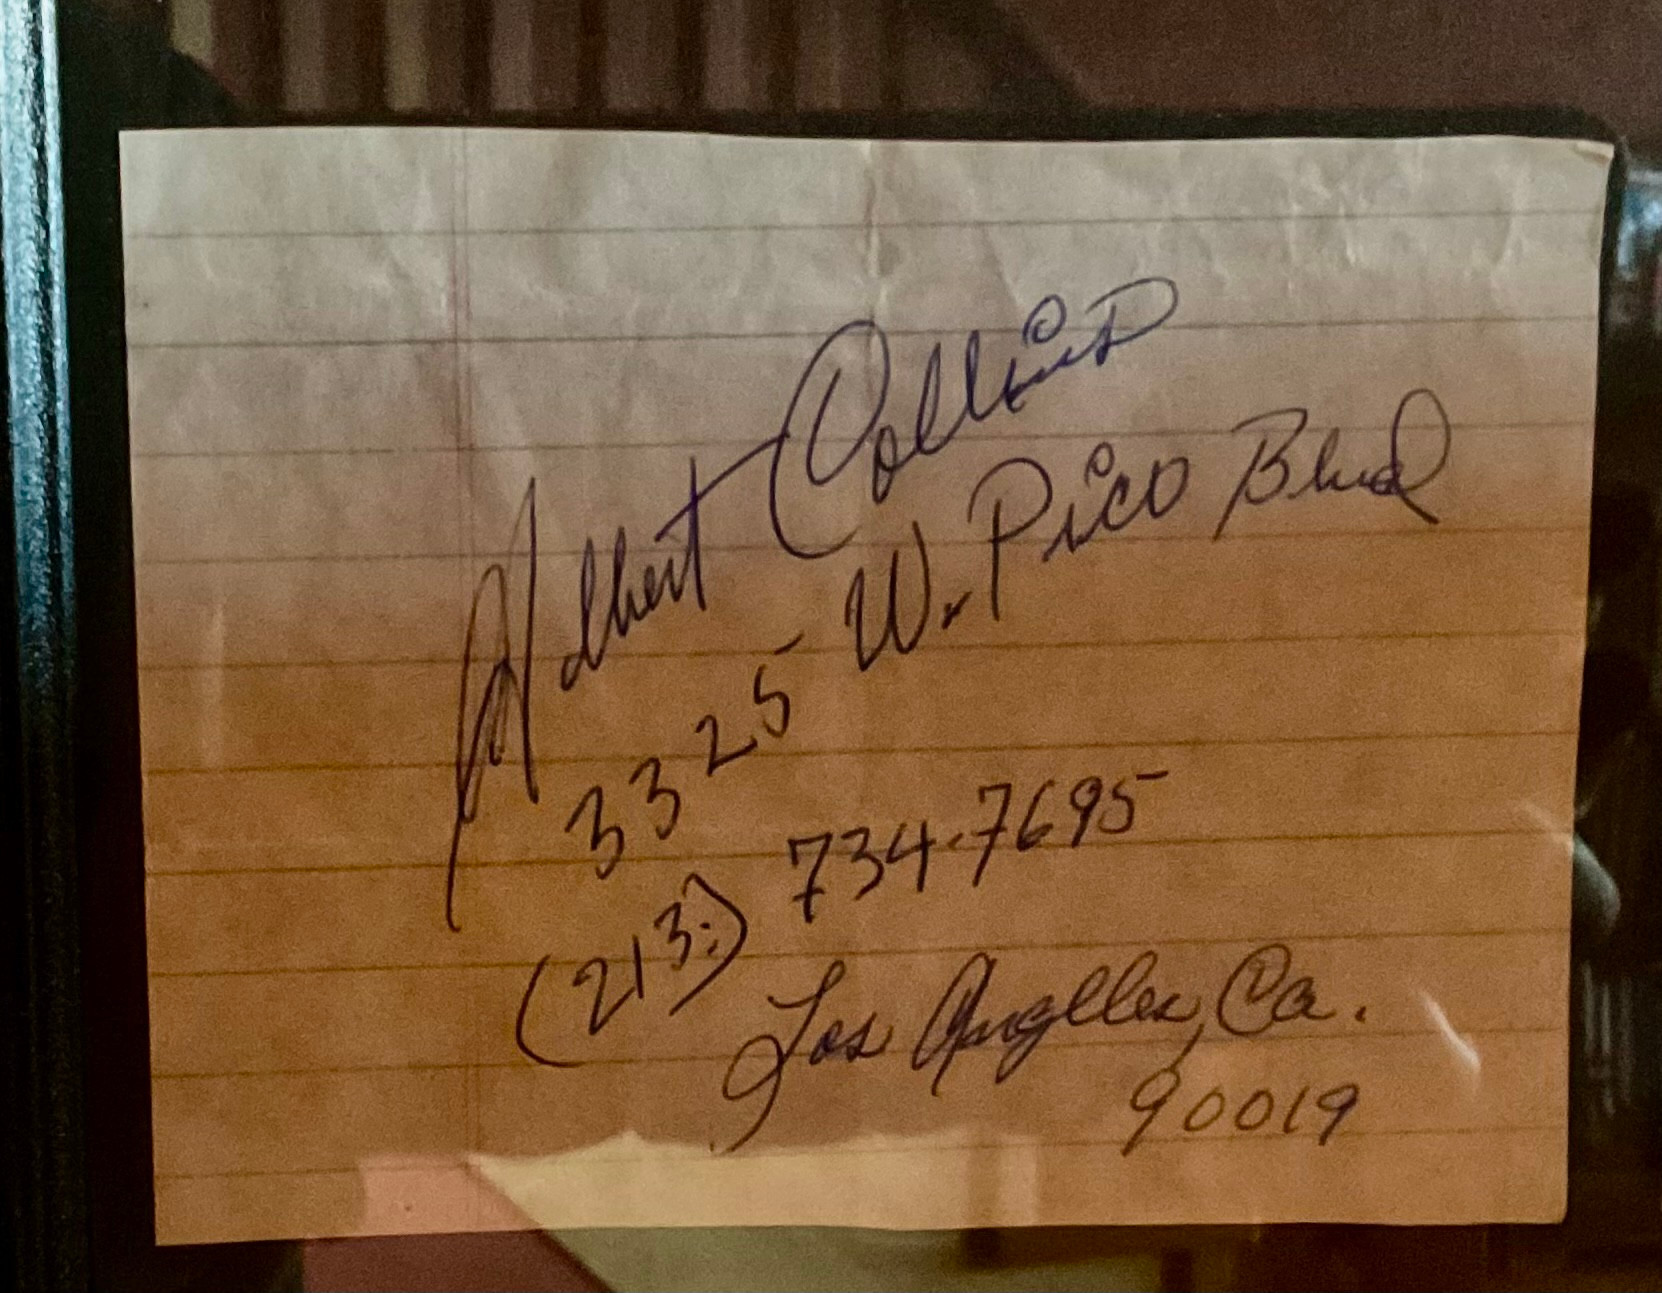 Albert Collins
3325 W. Pico Blvd
(213:) 734-7695
Los Angelles, Ca.
90019